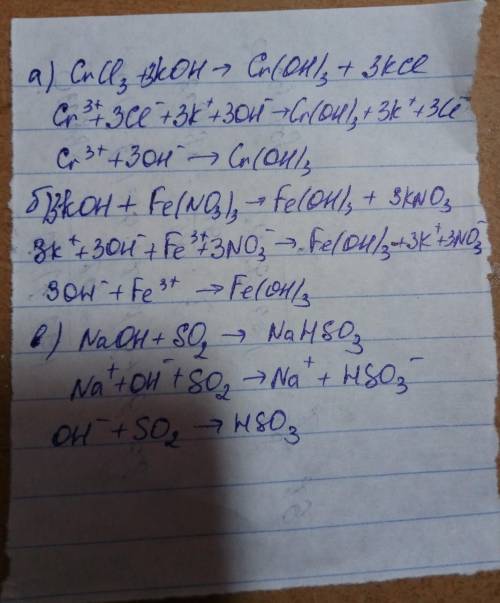 а) CrCl₃ + 3KOH → Cr(OH)₃ + 3KCl
Cr³⁺ + 3Cl⁻ + 3K⁺ + 3OH⁻ → Cr(OH)₃ + 3K⁺ + 3Cl⁻
Cr³⁺ + 3OH⁻ → Cr(OH)₃
б) 3KOH + Fe(NO₃)₃ → Fe(OH)₃ + 3KNO₃
3K⁺ + 3OH⁻ + Fe³⁺ + 3NO₃⁻ → Fe(OH)₃ + 3K⁺ + 3NO₃⁻
3OH⁻ + Fe³⁺ → Fe(OH)₃
в) NaOH + SO₂ → NaHSO₃
Na⁺ + OH⁻ + SO₂ → Na⁺ + HSO₃⁻
OH⁻ + SO₂ → HSO₃